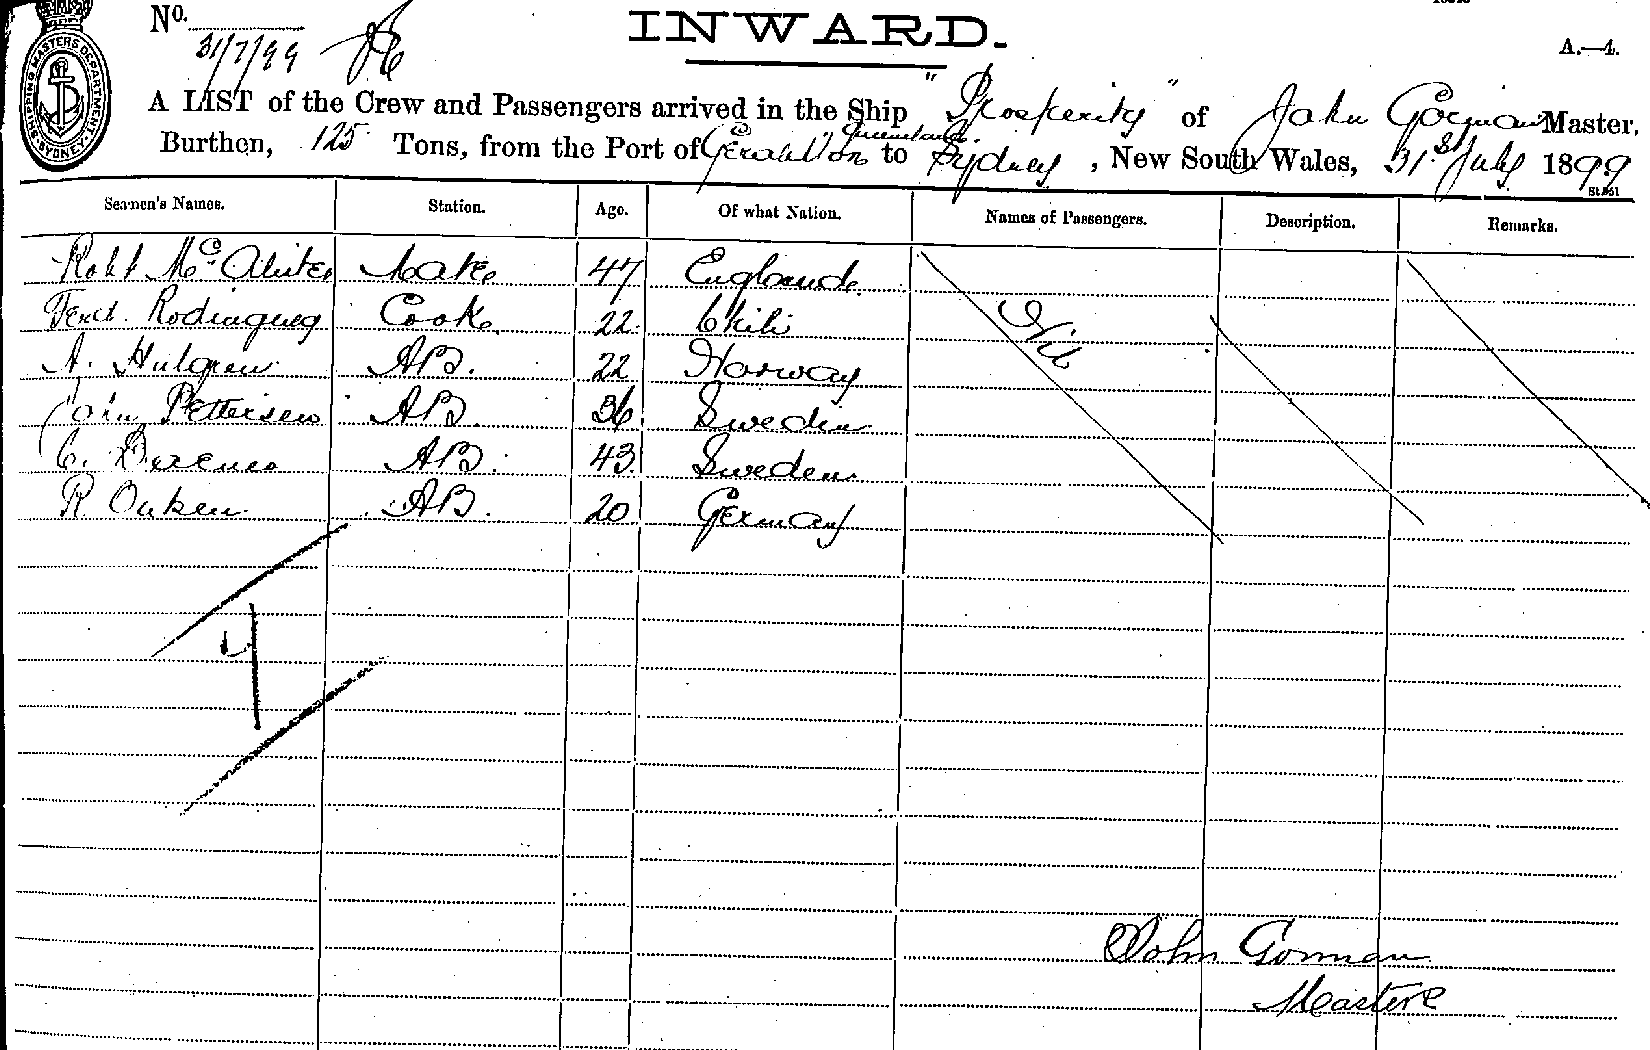 No.
INWARD.
A.—4.
31/7/99
A LIST of the Crew and Passengers arrived in the Ship "Prosperity" of John Gorman Master,
Burthen, 125 Tons, from the Port of Geraldton Queensland. to Sydney, New South Wales, 31st July 1899
SHIPPING MASTERS DEPARTMENT SYDNEY
Seamen's Names. Station. Age. Of what Nation. Names of Passengers. Description. Remarks.
Robt Mc Mate 47 England
Ferd. Cook 22 Chili
A. Hulgren AB. 22 Norway
John Pettersen AB 36 Sweden
C. AB. 43 Sweden
R. AB. 20 Germany
Nil
4
John Gorman
Master